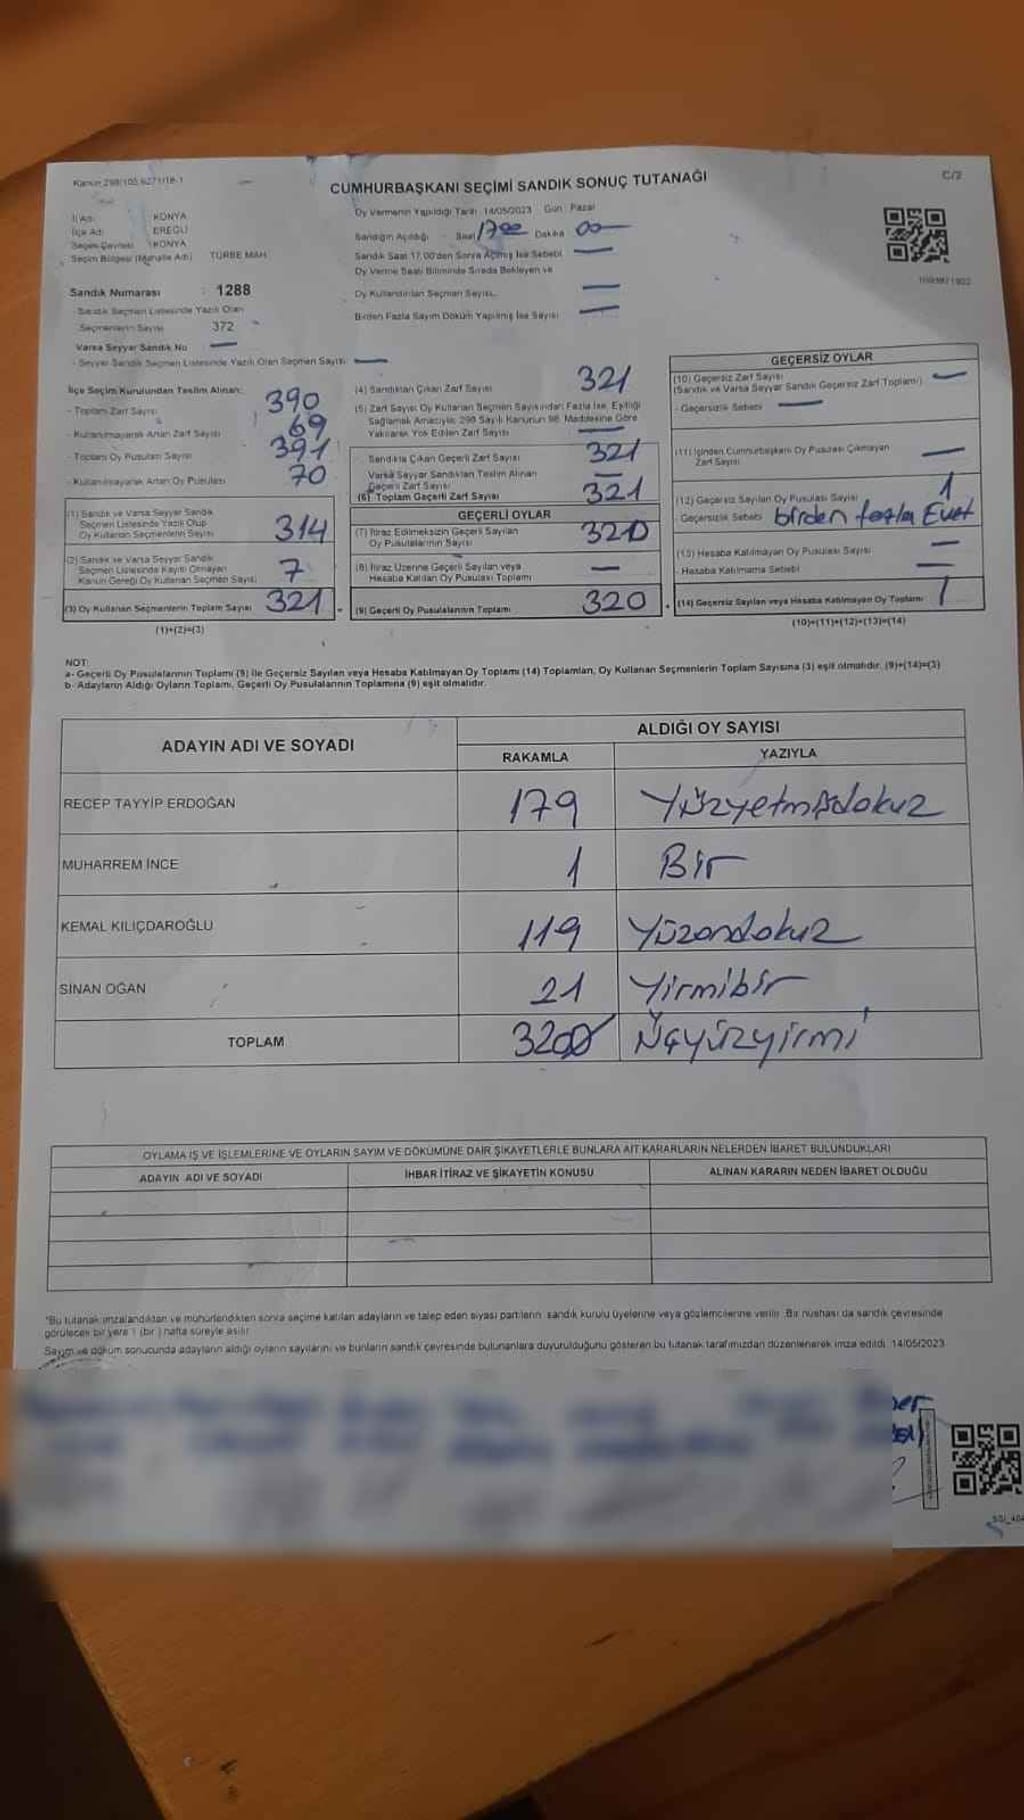 Kanun 298/105 6271/18-1
C/2
CUMHURBAŞKANI SEÇİMİ SANDIK SONUÇ TUTANAĞI
İl Adı: KONYA
İlçe Adı EREĞLİ
Seçim Çevresi KONYA
Seçim Bölgesi (Mahalle Adı) TÜRBE MAH.
Oy Vermenin Yapıldığı Tarih 14/05/2023 Gün: Pazar
Sandığın Açıldığı Saat 17 00 Dakika 00
Sandık Saat 17.00'den Sonra Açılmış İse Sebebi —
Oy Verme Saati Bitiminde Sırada Bekleyen ve
Oy Kullandırılan Seçmen Sayısı —
Birden Fazla Sayım Döküm Yapılmış İse Sayısı —
Sandık Numarası : 1288
- Sandık Seçmen Listesinde Yazılı Olan
Seçmenlerin Sayısı 372
Varsa Seyyar Sandık No —
- Seyyar Sandık Seçmen Listesinde Yazılı Olan Seçmen Sayısı —
İlçe Seçim Kurulundan Teslim Alınan:
- Toplam Zarf Sayısı 390
- Kullanılmayarak Artan Zarf Sayısı 69
- Toplam Oy Pusulası Sayısı 391
- Kullanılmayarak Artan Oy Pusulası 70
(1) Sandık ve Varsa Seyyar Sandık
Seçmen Listesinde Yazılı Olup
Oy Kullanan Seçmenlerin Sayısı 314
(2) Sandık ve Varsa Seyyar Sandık
Seçmen Listesinde Kaydı Olmayan
Kanun Gereği Oy Kullanan Seçmen Sayısı 7
(3) Oy Kullanan Seçmenlerin Toplam Sayısı 321
(1)+(2)=(3)
(4) Sandıktan Çıkan Zarf Sayısı 321
(5) Zarf Sayısı Oy Kullanan Seçmen Sayısından Fazla İse, Eşitliği
Sağlamak Amacıyla; 298 Sayılı Kanunun 98. Maddesine Göre
Yakılarak Yok Edilen Zarf Sayısı —
Sandıkta Çıkan Geçerli Zarf Sayısı 321
Varsa Seyyar Sandıktan Teslim Alınan
Geçerli Zarf Sayısı —
(6) Toplam Geçerli Zarf Sayısı 321
GEÇERLİ OYLAR
(7) İtiraz Edilmeksizin Geçerli Sayılan
Oy Pusulalarının Sayısı 320
(8) İtiraz Üzerine Geçerli Sayılan veya
Hesaba Katılan Oy Pusulası Toplamı —
(9) Geçerli Oy Pusulalarının Toplamı 320
GEÇERSİZ OYLAR
(10) Geçersiz Zarf Sayısı
(Sandık ve Varsa Seyyar Sandık Geçersiz Zarf Toplamı) —
- Geçersizlik Sebebi —
(11) İçinden Cumhurbaşkanı Oy Pusulası Çıkmayan
Zarf Sayısı —
(12) Geçersiz Sayılan Oy Pusulası Sayısı 1
- Geçersizlik Sebebi birden fazla Evet
(13) Hesaba Katılmayan Oy Pusulası Sayısı —
- Hesaba Katılmama Sebebi —
(14) Geçersiz Sayılan veya Hesaba Katılmayan Oy Toplamı 1
(10)+(11)+(12)+(13)=(14)
NOT:
a- Geçerli Oy Pusulalarının Toplamı (9) ile Geçersiz Sayılan veya Hesaba Katılmayan Oy Toplamı (14) Toplamları, Oy Kullanan Seçmenlerin Toplam Sayısına (3) eşit olmalıdır. (9)+(14)=(3)
b- Adayların Aldığı Oyların Toplamı, Geçerli Oy Pusulalarının Toplamına (9) eşit olmalıdır.
ADAYIN ADI VE SOYADI
ALDIĞI OY SAYISI
RAKAMLA YAZIYLA
RECEP TAYYİP ERDOĞAN 179 Yüzyetmişdokuz
MUHARREM İNCE 1 Bir
KEMAL KILIÇDAROĞLU 119 Yüzondokuz
SİNAN OĞAN 21 Yirmibir
TOPLAM 320 Üçyüzyirmi
OYLAMA İŞ VE İŞLEMLERİNE VE OYLARIN SAYIM VE DÖKÜMÜNE DAİR ŞİKAYETLERLE BUNLARA AİT KARARLARIN NELERDEN İBARET BULUNDUKLARI
ADAYIN ADI VE SOYADI İHBAR İTİRAZ VE ŞİKAYETİN KONUSU ALINAN KARARIN NEDEN İBARET OLDUĞU
*Bu tutanak imzalandıktan ve mühürlendikten sonra seçime katılan adayların ve talep eden siyasi partilerin sandık kurulu üyelerine veya gözlemcilerine verilir. Bir nüshası da sandık çevresinde
görülecek bir yere 1 (bir) hafta süreyle asılır.
Sayım ve döküm sonucunda adayların aldığı oyların sayılarını ve bunların sandık çevresinde bulunanlara duyurulduğunu gösteren bu tutanak tarafımızdan düzenlenerek imza edildi. 14/05/2023